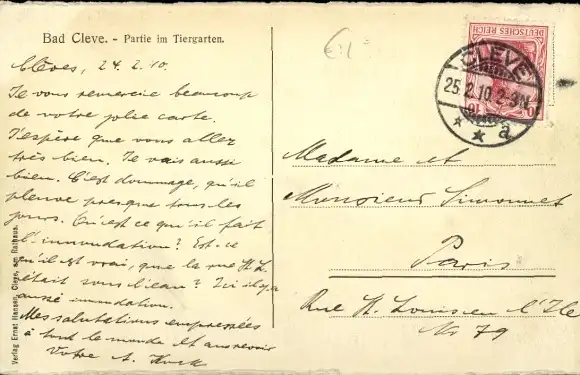 Bad Cleve. - Partie im Tiergarten.
Clèves, 24. 2. 10.
Je vous remercie beaucoup
de votre jolie carte.
J'espère que vous allez
très bien. Je vais aussi
bien. C'est dommage, qu'il
pleuve presque tous les
jours. Qu'est ce qu'il fait
l'innondation? Est-ce
qu'il est vrai, que la rue St. L.
était sous l'eau? Ici il y a
aussi innondation.
Mes salutations empressées
à tout le monde et au revoir
Votre A.
Verlag Ernst Hansen, Cleve, am Rathaus.
€1
DEUTSCHES REICH
10
CLEVE
25.2.10.2-3N.
* * a
Madame et
Monsieur Simonnet
Paris
Rue St. Louis en l'Ile
Nr 79